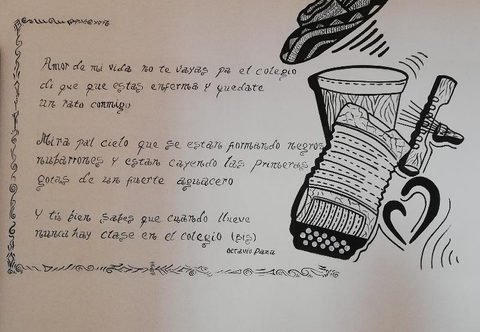 Amor de mi vida no te vayas pa el colegio
di que que estas enferma y quedate
un rato conmigo
Mira pal cielo que se estan formando negros
nubarrones y estan cayendo las primeras
gotas de un fuerte aguacero
Y tú bien sabes que cuando llueve
nunca hay clase en el colegio (bis)
octavio Daza